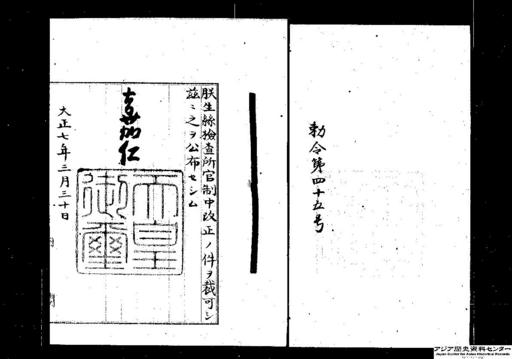 勅令第四十五号
朕生絲檢査所官制中改正ノ件ヲ裁可シ
茲ニ之ヲ公布セシム
嘉仁
天皇
御璽
大正七年三月三十日
アジア歴史資料センター
Japan Center for Asian Historical Records